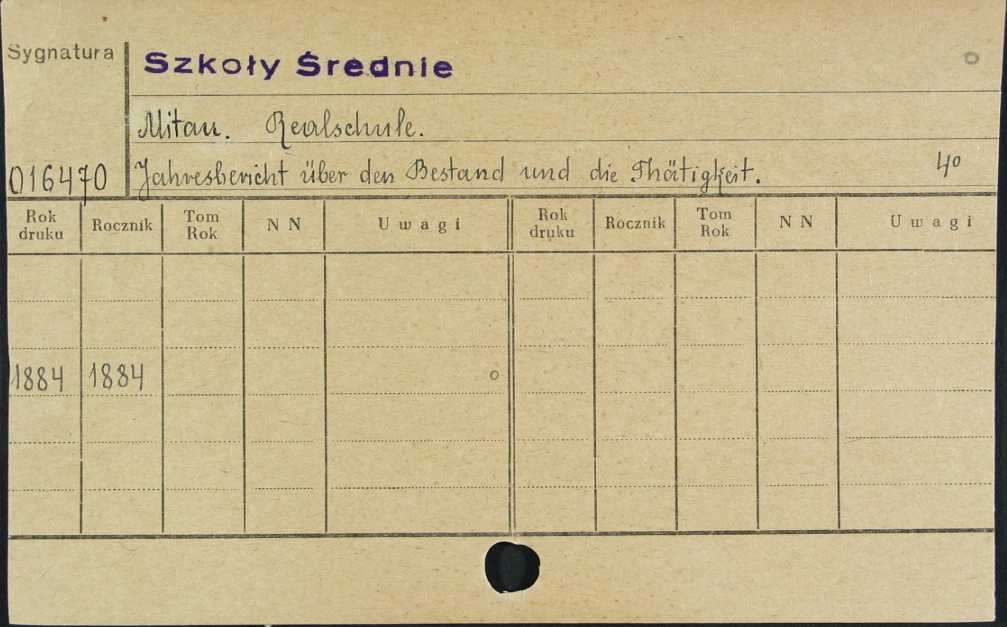 Sygnatura
Szkoły Średnie
Mitau. Realschule.
016470 Jahresbericht über den Bestand und die Thätigkeit. 4º
Rok druku Rocznik Tom Rok N N Uwagi Rok druku Rocznik Tom Rok N N Uwagi
1884 1884